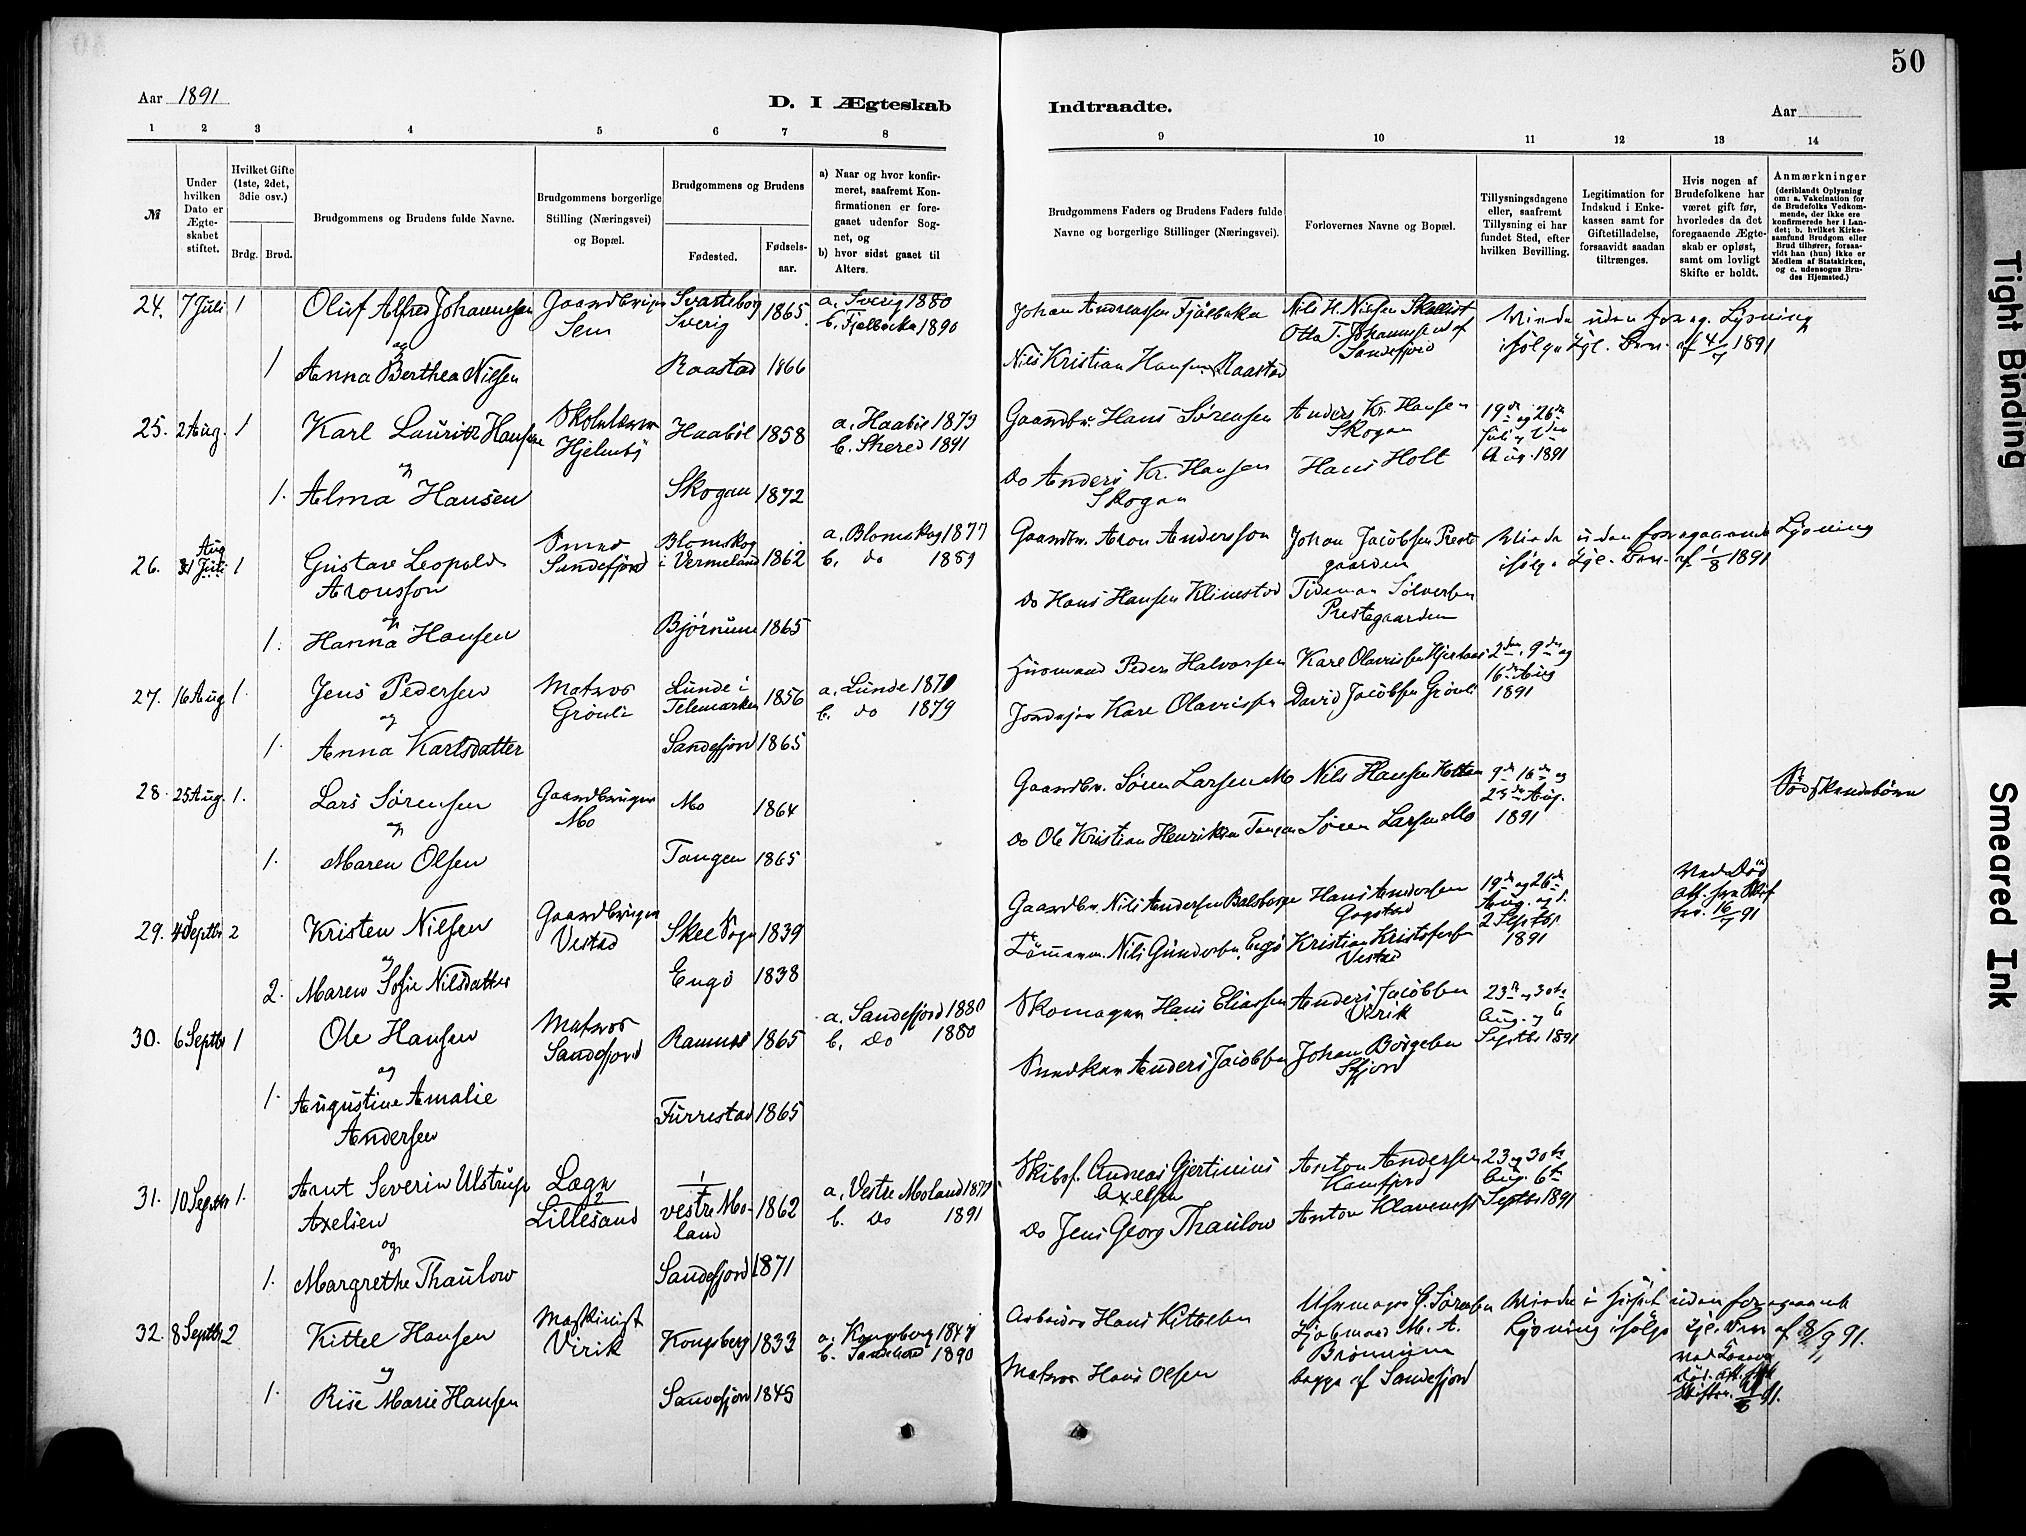 50
Aar 1891
D. I Ægteskab
Indtraadte.
Aar
1 2 3 4 5 6 7 8
9 10 11 12 13 14
№
Under hvilken Dato er Ægteskabet stiftet.
Hvilket Gifte (1ste, 2det, 3die osv.)
Brdg. Brud.
Brudgommens og Brudens fulde Navne.
Brudgommens borgerlige Stilling (Næringsvei) og Bopæl.
Brudgommens og Brudens
Fødested.
Fødselsaar.
a) Naar og hvor konfirmeret, saafremt Konfirmationen er foregaaet udenfor Sognet, og
b) hvor sidst gaaet til Alters.
Brudgommens Faders og Brudens Faders fulde Navne og borgerlige Stillinger (Næringsvei).
Forlovernes Navne og Bopæl.
Tillysningsdagene eller, saafremt Tillysning ei har fundet Sted, efter hvilken Bevilling.
Legitimation for Indskud i Enkekassen samt for Giftetilladelse, forsaavidt saadan tiltrænges.
Hvis nogen af Brudefolkene har været gift før, hvorledes da det foregaaende Ægteskab er opløst, samt om lovligt Skifte er holdt.
Anmærkninger
(deriblandt Oplysning om: a. Vakcination for de Brudefolks Vedkommende, der ikke ere konfirmerede her i Landet; b. hvilket Kirkesamfund Brudgom eller Brud tilhører, forsaavidt han (hun) ikke er Medlem af Statskirken, og c. udensogns Brudes Hjemsted.)
24. 7 Juli 1 Oluf Alfred Johannesen Gaardbruger Sem Svarteborg Sverig 1865 a. Sverig 1880 b. Fjelbacka 1890
Johan Andreassen Fjälbacka Nils H. Nielsen Otto T. Johannessen af Sandefjord
uden foreg. Lysning ifølge Kgl. Bev. af 4/7 1891
og
1 Anna Berthea Nilsen Raastad 1866
Nils Kristian Hansen Raastad
25. 2 Aug. 1 Karl Lauritz Hansen Skolelærer Haabøl 1858 a. Haabøl 1873 b. 1891
Gaardbr. Hans Sørensen Anders Kr. Hansen Skogan 19de og 26de Juli og 2den Aug. 1891
og
1. Alma Hansen Skogan 1872
Do Anders Kr. Hansen Skogan Hans Holt
26. Aug 1 Gustav Leopold Aronsson Smed Sandefjord Blomskog i Vermeland 1862 a. Blomskog 1877 b. do
Gaardbr. Aron Andersson Johan Jacobsen Prestegaarden
uden foregaaende Lysning ifølge Kgl. Bev. af 1/8 1891
og
1. Hanna Hansen 1865
Do Hans Hansen Klinestad Tideman Prestegaarden
27. 16 Aug 1. Jens Pedersen Matros Grønli Lunde i Telemarken 1856 a. Lunde b. do 1879
Husmand Peder Halvorsen 2den, 9de og 16de Aug 1891
og
1. Anna Karlsdatter Sandefjord 1865
Karl David Jacobsen Grønli
28. 25 Aug. 1. Lars Sørensen Gaardbruger Mo Mo 1864
Gaardbr. Søren Larsen Mo Nils Hansen 9de 16de og 23de Aug. 1891
og
1. Maren Olsen Tangen 1865
Do Ole Kristian Henriksen Tangen Søren Larsen Mo
29. 4 Septbr 2 Kristen Nilsen Gaardbruger Vestad Skee Sogn 1839
Gaardbr. Nils Andersen Hans Andersen Gogstad 19de og 26de Aug. og 2 Septbr 1891
ved Død
16/7 91
og
2. Maren Sofie Nilsdatter Engø 1838
Tømmerm. Nils Gundersen, Engø Kristian Kristofersen Vestad
30. 6 Septbr 1 Ole Hansen Matros Sandefjord 1865 a. Sandefjord 1880 b. Do 1880
Skomager Hans Eliassen Anders Jacobsen Virik 23de og 30te Aug. og 6 Septbr 1891
og
1. Augustine Amalie Andersen Furrestad 1865
Snedker Anders Jacobsen Johan Børgesen Sfjord
31. 10 Septbr 1. Arnt Severin Ulstrup Axelsen Læge Lillesand vestre Moland 1862 a. Vestre Moland b. Do 1891
Skibsf. Andreas Gjertinius Axelsen Anton Andersen 23 og 30te Aug. 6te Septbr 1891
og
1. Margrethe Thaulow Sandefjord 1871
Do Jens Georg Thaulow Anton Klaveness
32. 8 Septbr 2 Kittel Hansen Maskinist Virik Kongsberg 1833 a. Kongsberg 1847 b. 1890
Arbeider Hans Kittelsen Uhrmager G. Sørensen
i Huset uden foregaaende Lysning ifølge Kgl. Bev. af 8/9 91.
og
1. Rise Marie Hansen Sandefjord 1845
Matros Hans Olsen begge af Sandefjord
Tight Binding
Smeared Ink